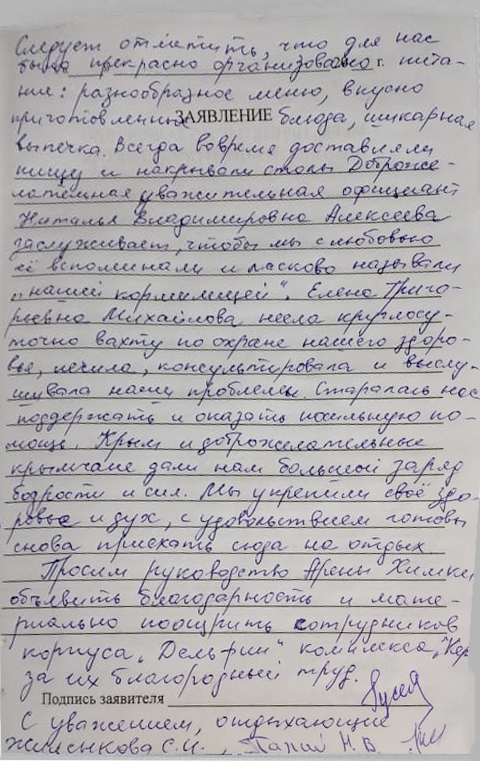 Следует отметить, что для нас
было прекрасно организовано г. пита-
ние: разнообразное меню, вкусно
приготовленные ЗАЯВЛЕНИЕ блюда, шикарная
выпечка. Всегда вовремя доставляли
пищу и накрывали столы. Доброже-
лательная уважительная официант
Наталья Владимировна Алексеева
заслуживает, чтобы мы с любовью
её вспоминали и ласково называли
„нашей кормилицей“. Елена Григо-
рьевна Михайлова несла круглосу-
точно вахту по охране нашего здоро-
вье, лечила, консультировала и выслу-
шивала наши проблемы. Старалась нас
поддержать и оказать посильную по-
мощь. Крым и доброжелательные
крымчане дали нам большой заряд
бодрости и сил. Мы укрепили своё здо-
ровье и дух, с удовольствием готовы
снова приехать сюда на отдых
Просим руководство Арены Химки
объявить благодарность и мате-
риально поощрить сотрудников
корпуса „Дельфин“ комплекса „Кер
за их благородный труд.
Подпись заявителя
С уважением, отдыхающие
С.И., Н.В.